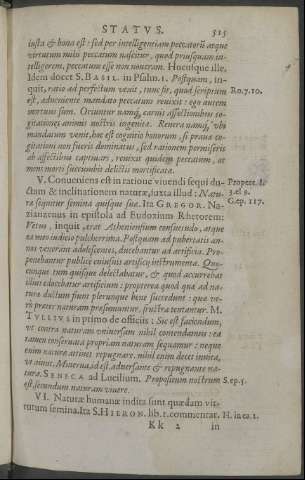 STATVS. 515
iusta & bona est: sed per intelligentiam peccatorū atque
virtutum misso peccatum nascitur, quod priusquam in-
telligerem, peccatum esse non noueram. Hucusque ille.
Idem docet S. BASIL. in Psalm. 1. Postquam, in-
quit, ratio ad perfectum venit, tunc fit, quod scriptum Ro. 7. 10.
est, adueniente mandato peccatum reuixit: ego autem
mortuus sum. Oriuntur namq, carnis affectionibus co-
gitationes animis nostris ingenitæ. Reuera namq, vbi
mandatum venit, hoc est cognitio bonorum, si praua co-
gitatiōi non fueris dominatus, sed rationem permiseris
ab affectibus captiuari, reuixit quidem peccatum, at
mens moritur succumbit delictis mortificata.
V. Conueniens est in ratione viuendi sequi du- Propert. l.
ctum & inclinationem naturæ, iuxta illud: Natu- 3. el. 9.
ræ sequitur semina quisque suæ. Ita GREGOR. Na- G. ep. 117.
zianzenus in epistola ad Eudoxium Rhetorem:
Vetus, inquit, erat Atheniensium consuetudo, atque
ea meo iudicio pulcherrima. Postquam ad pubertatis an-
nos peruenerant adolescentes, ducebantur ad artificia. Pro-
ponebantur publicè cuiusuis artificij instrumenta. Quo-
cunque tum quisque delectabatur, & quod accurrebat
illius edocebatur artificium: propterea quod quæ ad na-
turæ ductum fiunt plerunque benè succedunt: quæ ve-
rò præter naturam præsumuntur, frustra tentantur. M.
TVLLIVS in primo de officiis: Sic est faciendum,
vt contra naturam vniuersam nihil contendamus: ea
tamen conseruata propriam naturam sequamur: neque
enim naturæ attinet repugnare. nihil enim decet inuita,
vt aiunt, Minerua, id est aduersante & repugnante na-
tura. SENECA ad Lucilium. Propositum nostrum S. ep. 5.
est secundum naturam viuere.
VI. Naturæ humanæ indita sunt quædam vir-
tutum semina. Ita S. HIERON. lib. 1. commentar. H. in ca. 1.
Kk 2 in